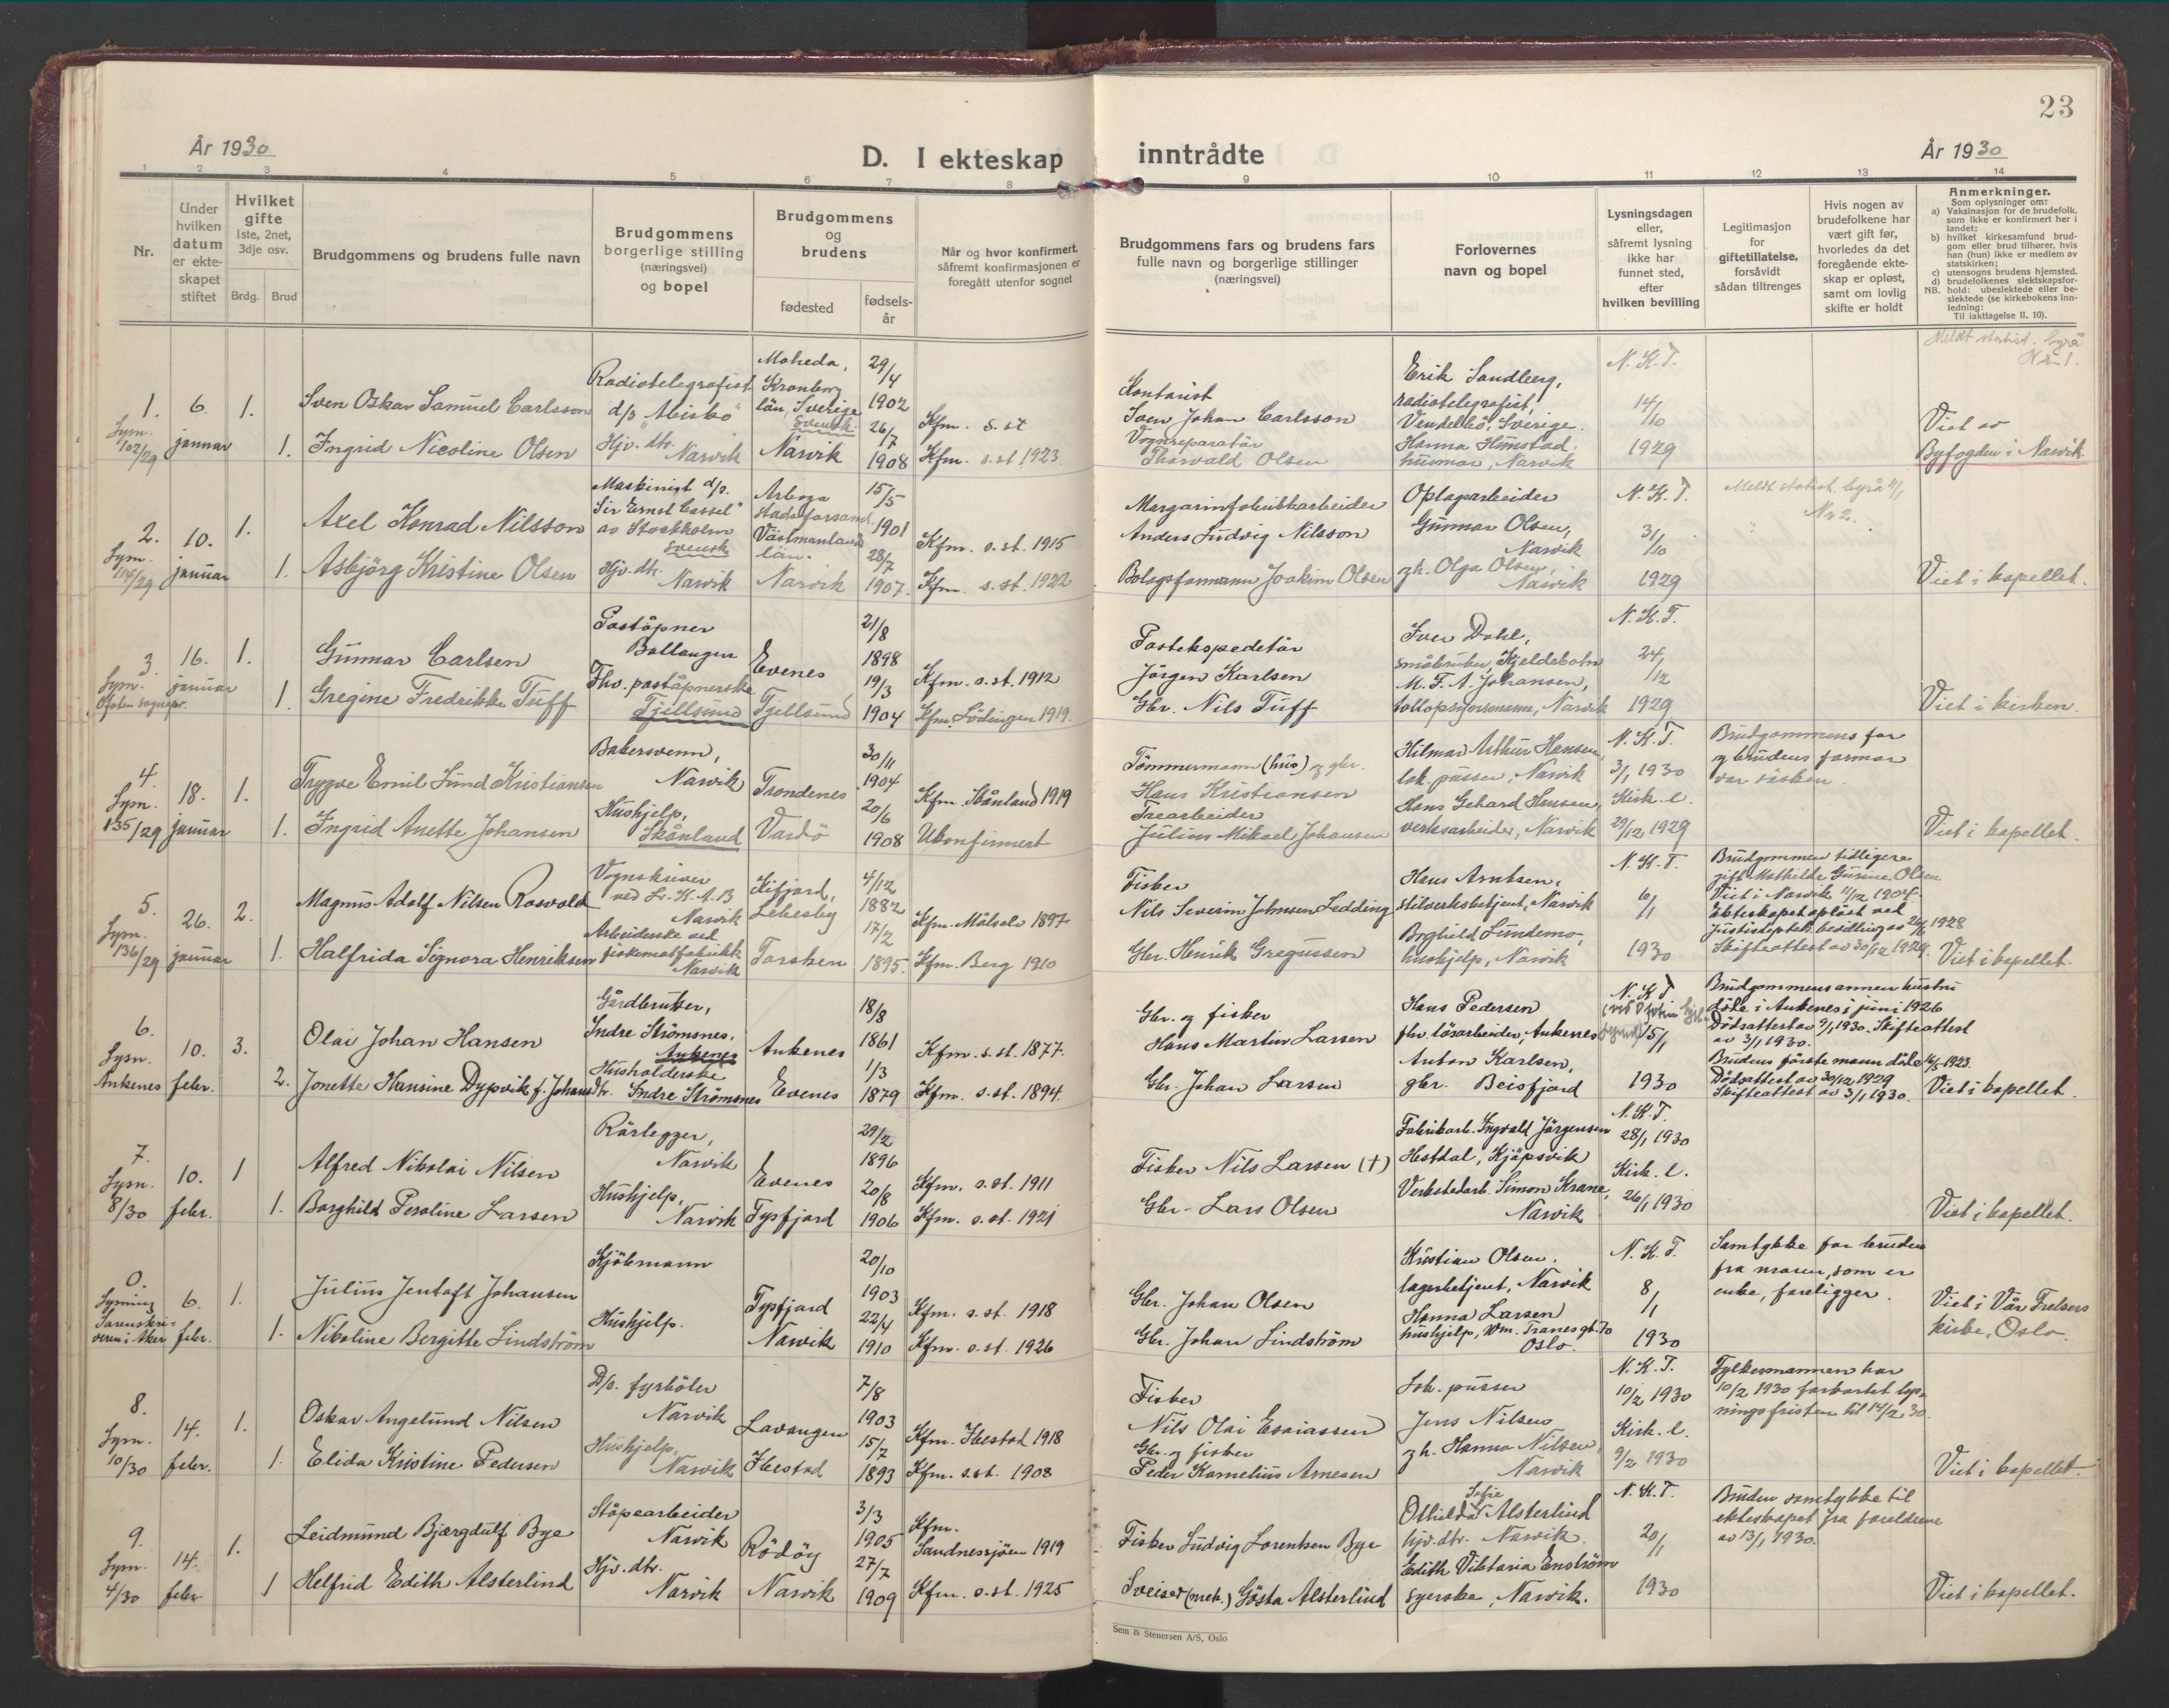 23
År 1930
D. I ekteskap
inntrådte
År 1930
1 2 3 4 5 6 7 8
9 10 11 12 13 14
Nr.
Under hvilken datum er ekteskapet stiftet
Hvilket gifte
1ste, 2net, 3dje osv.
Brdg. Brud
Brudgommens og brudens fulle navn
Brudgommens borgerlige stilling (næringsvei) og bopel
Brudgommens og brudens
fødested
fødselsår
Når og hvor konfirmert, såfremt konfirmasjonen er foregått utenfor sognet
Brudgommens fars og brudens fars fulle navn og borgerlige stillinger (næringsvei)
Forlovernes navn og bopel
Lysningsdagen eller, såfremt lysning ikke har funnet sted, efter hvilken bevilling
Legitimasjon for giftetillatelse, forsåvidt sådan tiltrenges
Hvis nogen av brudefolkene har vært gift før, hvorledes da det foregående ekteskap er opløst, samt om lovlig skifte er holdt
Anmerkninger.
Som oplysninger om:
a) Vaksinasjon for de brudefolk. som ikke er konfirmert her i landet;
b) hvilket kirkesamfund brudgom eller brud tilhører, hvis han (hun) ikke er medlem av statskirken;
c) utensogns brudens hjemsted.
d) brudefolkenes slektskapsforhold: ubeslektede eller beslektede (se kirkebokens Innledning:
NB.
Til iakttagelse II. 10).
Meldt statist. byrå
Nr. 1.
1. Lysn. 102/29
6. januar
1.
Sven Oskar Samuel Carlsson
Radiotelegrafist d/s "Abisko"
Moheda, Kronberg län, Sverige
svensk.
29/4 1902
Kfm. s. st
Kontorist
Sven Johan Carlsson
Erik Sandberg, radiotelegrafist, Vendelsö, Sverige.
N. K. T.
14/10
1929
1. Ingrid Nicoline Olsen
Hjv. dtr. Narvik
Narvik
26/7 1908
Kfm. s. st 1923
Vognreparatør
Thorvald Olsen
Hanna Himstad, husmor, Narvik
Viet av
Byfogden i Narvik
2. Lysn. 114/29
10. januar
1.
Axel Konrad Nilsson
Maskinist d/s. "Sir Ernst Cassel" av Stockholm
svensk
Arboga stadsförsaml. Västmanlands län.
15/5 1901
Kfm. s. st. 1915
Margarinfabrikkarbeider
Anders Ludvig Nilsson
Oplagarbeider
Gunnar Olsen, Narvik
N. K. T.
3/10
1929
Meldt statist. byrå 11/1
Nr 2.
1. Asbjörg Kristine Olsen
Hjv. dtr. Narvik
Narvik
28/7 1907.
Kfm. s. st. 1922
Bolagsformann Joakim Olsen
gh. Olga Olsen, Narvik
Viet i kapellet.
3. Lysn. Ofoten sognepr.
16. januar
1.
Gunnar Carlsen
Poståpner
Ballangen
Evenes
21/8 1898
Kfm. s. st. 1912
Postekspeditør
Jörgen Karlsen
Iver Dahl, småbruker, Kjeldebotn
N. K. T.
24/12
1929
1. Gregine Fredrikke Tuff
Fhv. poståpnerske
Tjellsund
Tjellsund
19/3 1904
Kfm. Lödingen 1919.
Gbr. Nils Tuff
M. F. A. Johansen, tollopsynsmann, Narvik
Viet i kirken.
4. Lysn. 135/29
18. januar
1.
Trygve Emil Lund Kristiansen
Bakersvenn, Narvik
Trondenes
30/11 1904
Kfm. Skånland 1919
Tømmermann (hus) og gbr.
Hans Kristiansen
Hilmar Arthur Hansen, lok. pusser, Narvik
N. K. T.
3/1 1930
Brudgommens far og brudens farmor var søsken.
1. Ingrid Anette Johansen
Hushjelp, Skånland
Vardö
20/6 1908
Ukonfirmert
Trearbeider
Julius Mikael Johansen
Hans Gehard Hansen, verksarbeider, Narvik
Kirk. l.
29/12 1929
Viet i kapellet.
5. Lysn. 136/29
26. januar
2.
Magnus Adolf Nilsen Rosvold
Vognskriver ved L. K. A. B Narvik
Kifjord, Lebesby
4/12 1882
Kfm. Målselv 1897
Fisker
Nils Severin Johnsen Ledding
Hans Arntsen, stilverksbetjent, Narvik
N. K. T.
6/1
1930
Brudgommen tidligere gift Mathilde Gurine Olsen
Viet i Narvik 11/12 1904.
Ekteskapet opløst ved justisdeptets bevilling av 26/6 1928
Skifteattest av 30/12 1929.
1. Halfrida Signora Henriksen
Arbeiderske ved fiskematfabrikk Narvik
Torsken
17/2 1895.
Kfm. Berg 1910
Gbr. Henrik Gregussen
Borghild Lundemo, hushjelp, Narvik
Viet i kapellet.
6. Lysn. Ankenes
10. febr.
3.
Olai Johan Hansen
Gårdbruker, Indre Strömsnes, Ankenes
Ankenes
18/8 1861
Kfm. s. st. 1877.
Gbr. og fisker
Hans Martin Larsen
Hans Pedersen fhv. lösarbeider, Ankenes
N. K. T
15/1
1930
Brudgommens annen hustru döde i Ankenes i juni 1926
Dödsattest av 9/1 1930. Skifteattest av 3/1 1930.
2. Jonette Hansine Dypvik f. Johansdtr.
Husholderske Indre Strömsnes
Evenes
1/3 1879
Kfm. s. st. 1894.
Gbr. Johan Larsen
Anton Karlsen, gbr. Beisfjord
Brudens förste mann döde 16/5 1923.
Dödsattest av 30/12 1929
Skifteattest av 3/1 1930.
Viet i kapellet.
7. Lysn. 8/30
10. febr.
1
Alfred Nikolai Nilsen
Rørlegger, Narvik
Evenes
29/2 1896
Kfm. s. st. 1911
Fisker Nils Larsen (†)
Fabrikarb. Ingvald Jörgensen Hestdal, Kjöpsvik
N. K. T.
28/1 1930
1. Borghild Peroline Larsen
Hushjelp, Narvik
Tysfjord
20/8 1906
Kfm. s. st. 1921
Gbr. Lars Olsen
Verkstedarb. Simon Krane, Narvik
Kirk. l.
26/1 1930
Viet i kapellet.
0. Lysning Sorenskriveren i Aker
6. febr.
1.
Julius Jentoft Johansen
Kjöbmann
Tysfjord
20/10 1903
Kfm. s. st. 1918
Gbr. Johan Olsen
Kristian Olsen, lagerbetjent, Narvik
N. K. T.
8/1
1930
Samtykke for bruden fra moren, som er enke, foreligger.
1. Nikoline Bergitte Lindström
Hushjelp.
Narvik
22/4 1910
Kfm. s. st. 1926
Gbr. Johan Lindström
Hanna Larsen hushjelp, Wm. Tranesgt. 70 Oslo.
Viet i Vår Frelsers kirke, Oslo.
8. Lysn. 10/30
14. febr.
1.
Oskar Angelund Nilsen
D/s. fyrböter Narvik
Lavangen
7/8 1903
Kfm. Ibestad 1918
Fisker
Nils Olai Esaiassen
Lok. pusser
Jens Nilsen
N. K. T.
10/2 1930
Fylkesmannen har 10/2 1930 forkortet lysningsfristen til 14/2 30.
1. Elida Kristine Pedersen
Hushjelp, Narvik
Ibestad
15/7 1893
Kfm. s. st. 1908
Gbr. og fisker
Peder Kornelius Arnesen
gh. Hanna Nilsen, Narvik
Kirk. l.
9/2 1930
Viet i kapellet.
9. Lysn. 4/30
14. febr
1.
Leidmund Bjærgdulf Bye
Støpearbeider Narvik
Rödöy
3/3 1905
Kfm. Sandnessjöen 1919
Fisker Ludvig Lorentsen Bye
Othilda Sofie Alsterlind hjv. dtr. Narvik.
N. K. T.
20/1
1930
Bruden samtykke til ekteskapet fra foreldrene av 13/1 1930.
1 Helfrid Edith Alsterlind
Hjv. dtr. Narvik
Narvik
27/7 1909
Kfm. s. st. 1925
Sveiser (mek.) Gösta Alsterlind
Edith Viktoria Enström syerske, Narvik.
Viet i kapellet.
Sem & Stenersen A/S, Oslo